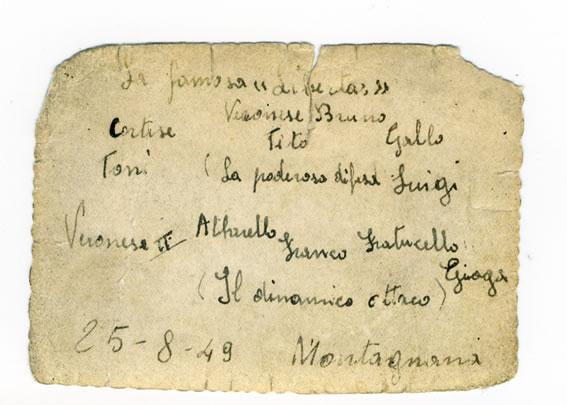 La famosa «Libertas»
Veronese Bruno
Cortese Tito Gallo
Toni (La poderosa difesa Luigi
Veronese II Altarello Franco Fratucello
Gioga
(Il dinamico attaco)
25-8-49 Montagnana